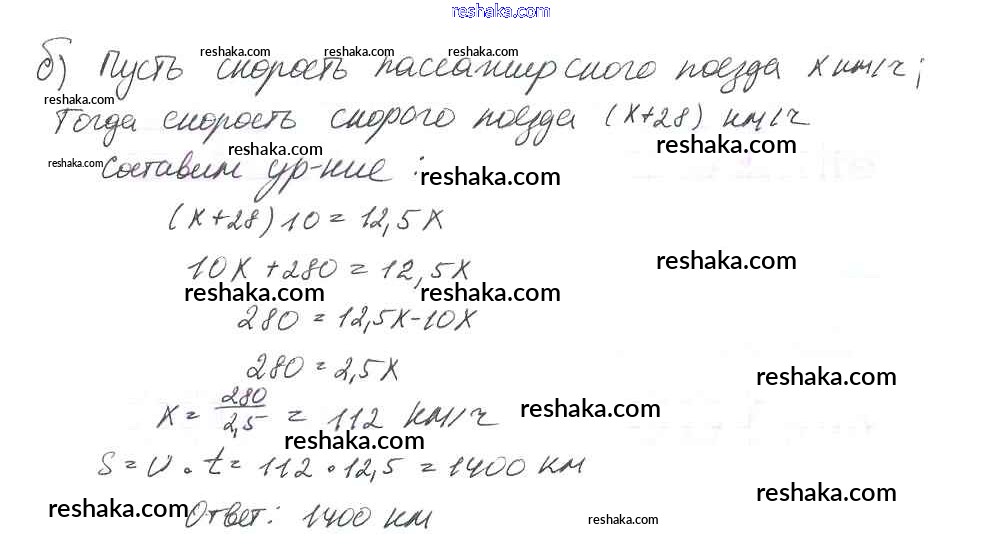 reshaka.com
reshaka.com reshaka.com reshaka.com
б) Пусть скорость пассажирского поезда x км/ч;
reshaka.com
Тогда скорость скорого поезда (x+28) км/ч
reshaka.com reshaka.com
reshaka.com
Составим ур-ние :
reshaka.com
(x+28)10=12,5x
10x+280=12,5x
reshaka.com
reshaka.com reshaka.com
280=12,5x-10x
280=2,5x
reshaka.com
x=280/2,5=112 км/ч
reshaka.com
reshaka.com
S=υ•t=112•12,5=1400 км
reshaka.com
reshaka.com
Ответ: 1400 км
reshaka.com